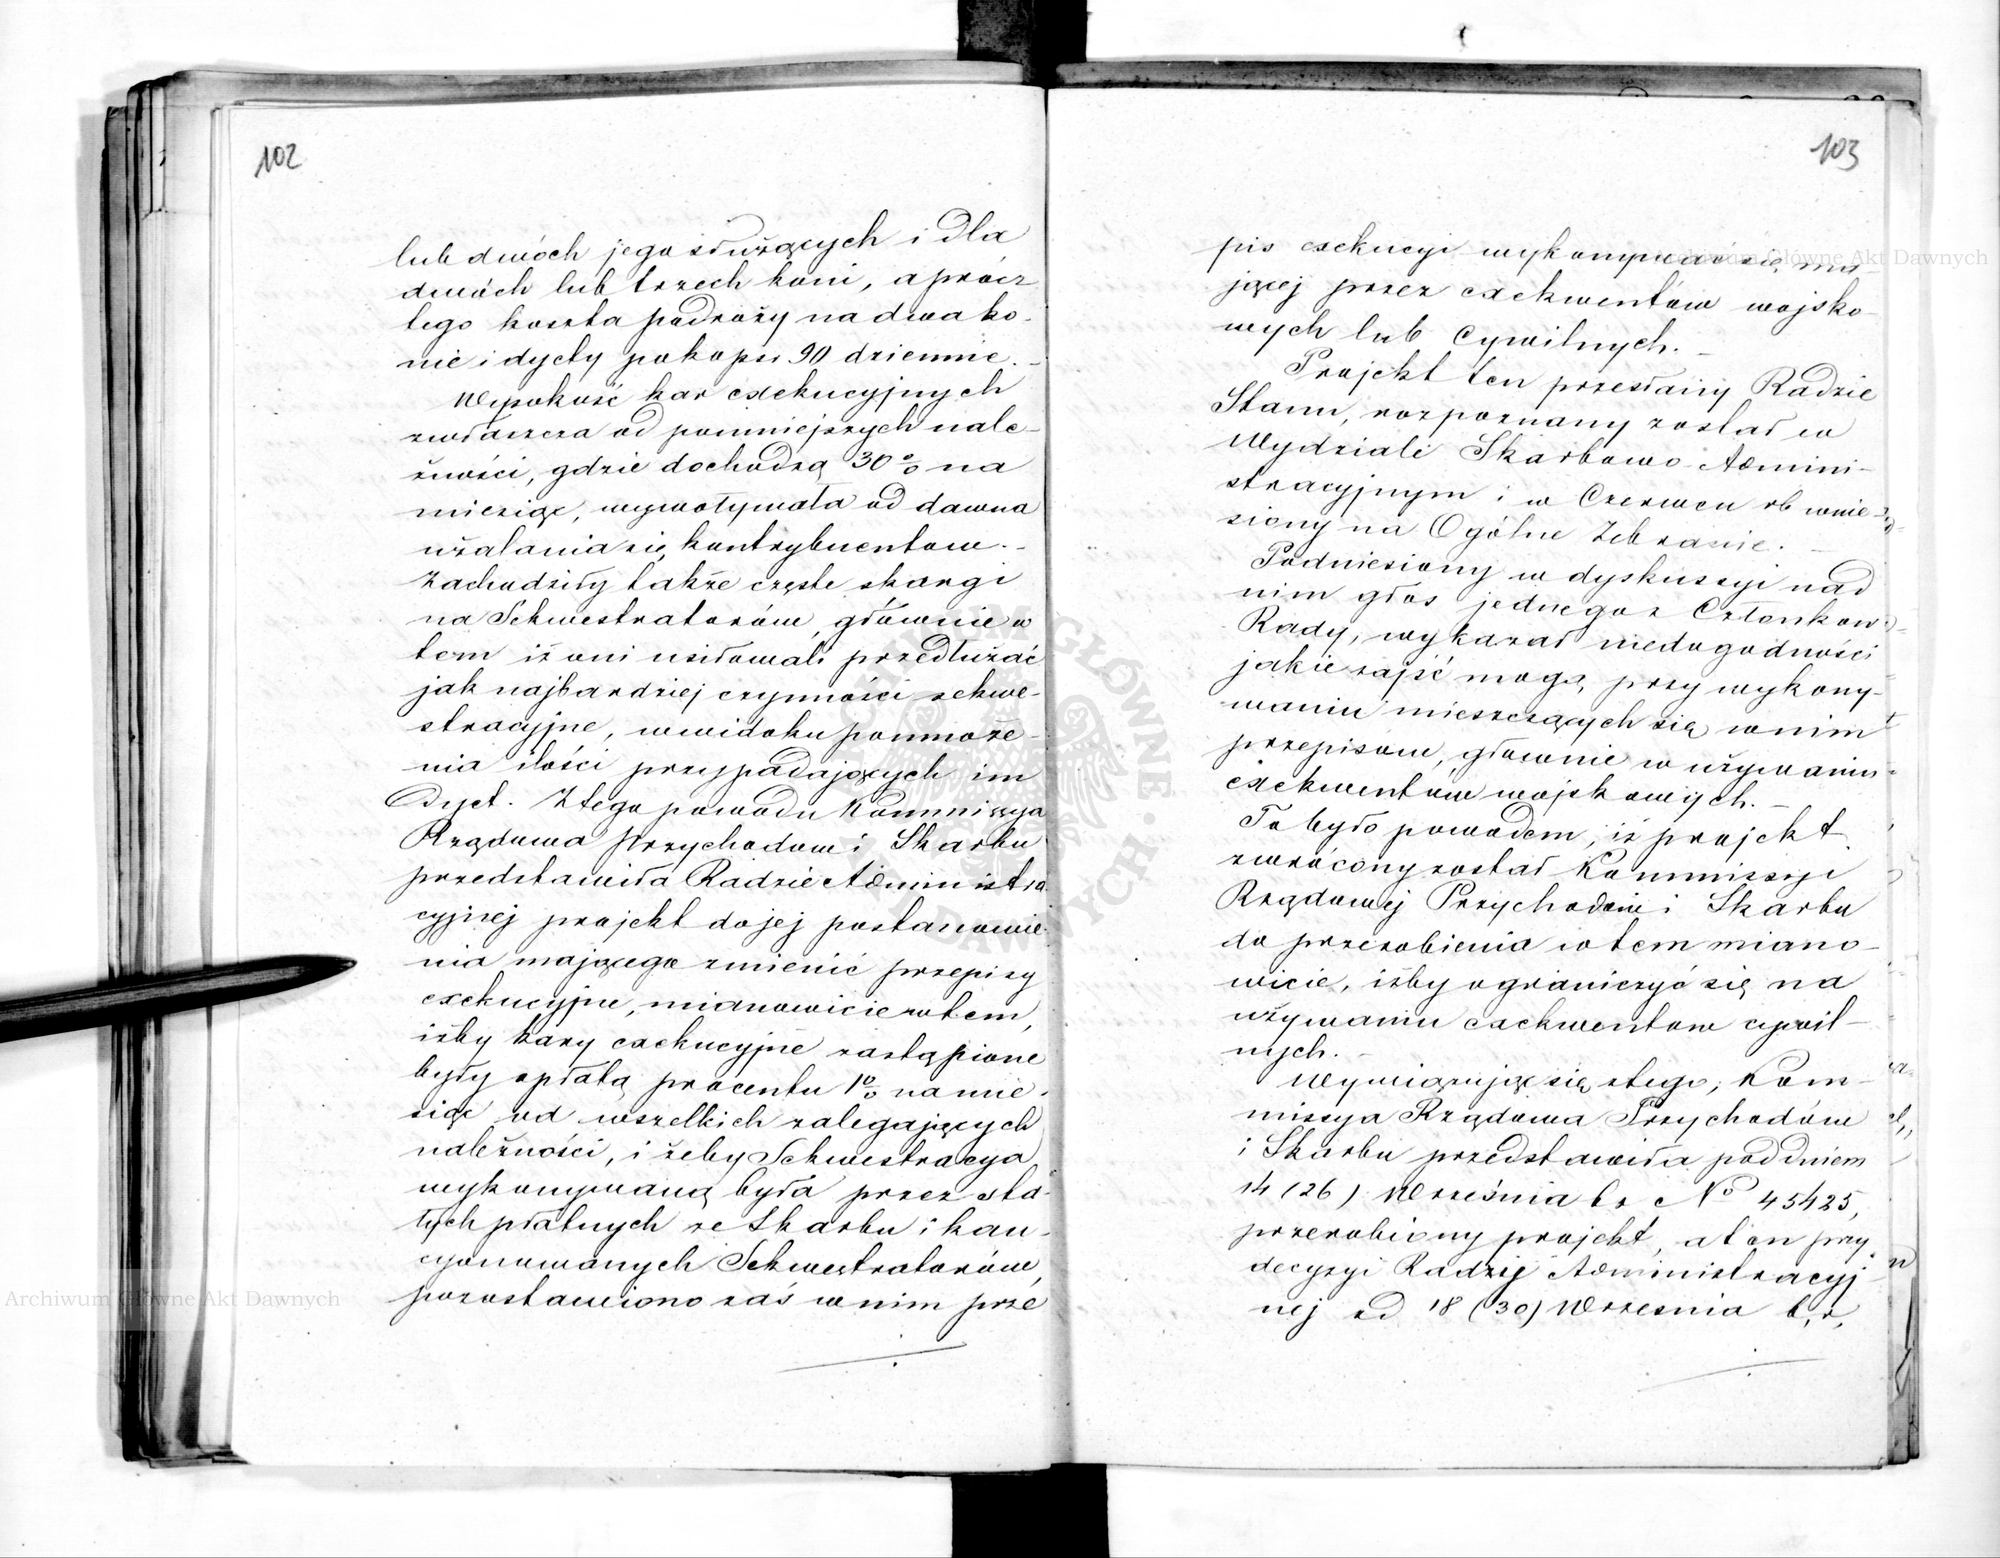 102
lub dwóch jego służących i dla
dwóch lub trzech koni, a prócz
tego koszta podróży na dwa ko-
nie i dyety po kopsr 90 dziennie. –
Wysokość kar exekucyjnych
zwłaszcza od pomniejszych nale-
żności, gdzie dochodzą 30 % na
miesiąc, wywoływała od dawna
użalania się kontrybuentow. –
Zachodziły także częste skargi
na Sekwestratorów, głównie o
tem iż oni usiłowali przedłużać
jak najbardziej czynności sekwe-
stracyjne, w widoku pomnoże-
nia ilości przypadających im
Dyet. Z tego powodu Kommissya
Rządowa Przychodow i Skarbu
przedstawiła Radzie Administra
cyjnej projekt do jej postanowie-
nia mającego zmienić przepisy
exekucyjne, mianowicie w tem,
iżby kary exekucyjne zastąpione
były opłatą procentu 1 % na mie-
siąc od wszelkich zalegających
należności, i żeby Sekwestracya
wykonywaną była przez sta-
łych płatnych ze Skarbu i kau-
cyonowanych Sekwestratorów,
pozostawiono zaś w nim prze
103
pis exekucyi wykonywać się ma-
jącej przez exekwentów wojsko-
wych lub Cywilnych. –
Projekt ten przesłany Radzie
Stanu, rozpoznany został w
Wydziale Skarbowo Admini-
stracyjnym i w Czerwcu rb wnie-
siony na Ogólne Zebranie. –
Podniesiony w dyskussyi nad
nim głos jednego z Członków
Rady, wykazał niedogodności
jakie zajść mogą, przy wykony-
waniu mieszczących się w nim
przepisów, głównie w używaniu
exekwentów wojskowych. –
To było powodem, iż projekt
zwrócony został Kommissyi
Rządowej Przychodów i Skarbu
do przerobienia w tem miano-
wicie, iżby ograniczyć się na
używaniu exekwentow cywil-
nych. –
Wywiązując się z tego, Kom-
missya Rządowa Przychodów
i Skarbu przedstawiła pod dniem
14 (26) Września br No 45425,
przerobiony projekt, a ten przy
decyzyi Radzy Administracyj
nej od 18 (30) Wrzesnia b.r.
Archiwum Główne Akt Dawnych
Archiwum Główne Akt Dawnych
ARCHIWUM GŁÓWNE AKT DAWNYCH